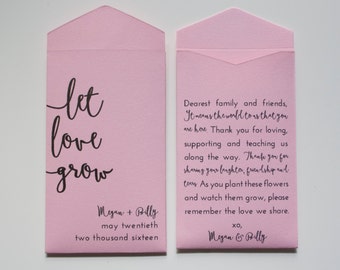 let
love
grow
Megan + Billy
may twentieth
two thousand sixteen
Dearest family and friends,
It means the world to us that you
are here. Thank you for loving,
supporting and teaching us
along the way. Thank you for
sharing your laughter, friendship and
tears. As you plant these flowers
and watch them grow, please
remember the love we share.
xo,
Megan & Billy